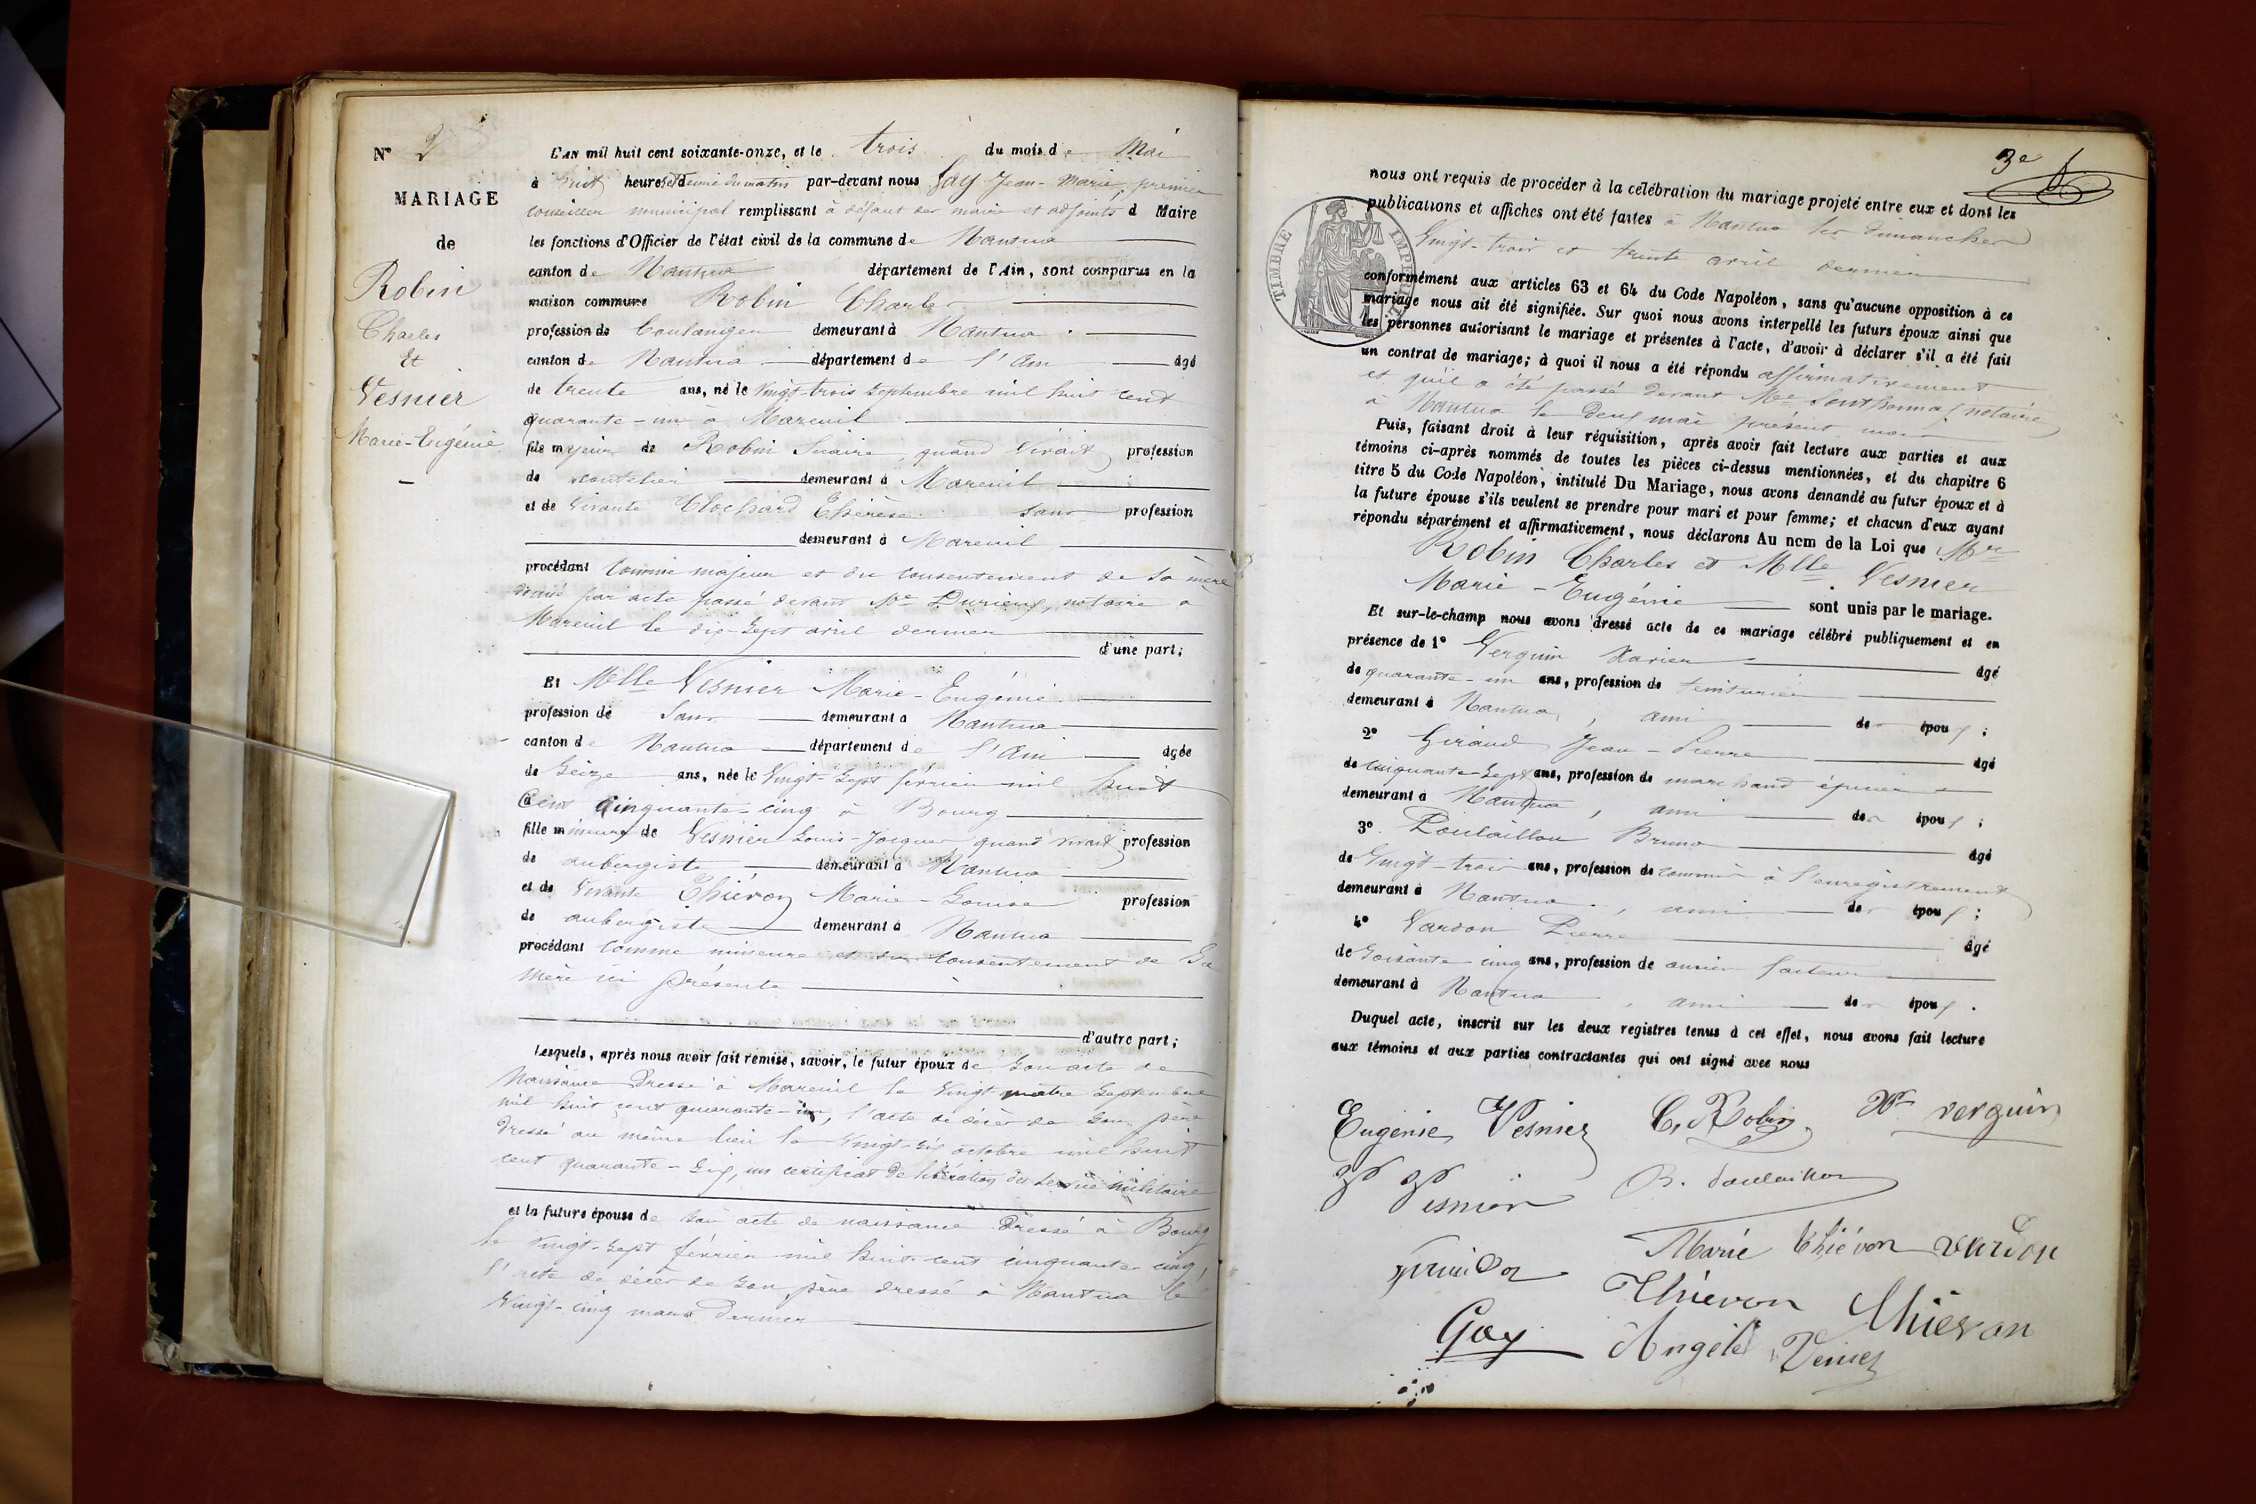 N° 2
MARIAGE
de
Robin
Charles
Et
Vesnier
Marie-Eugénie
L'AN mil huit cent soixante-onze, et le trois du mois de Mai
à huit heures et demie du matin par-devant nous Gay Jean-Marie, premier
conseiller municipal remplissant à défaut des maire et adjoints d Maire
les fonctions d'Officier de l'état civil de la commune de Nantua
canton de Nantua département de l'Ain, sont comparus en la
maison commune Robin Charles
profession de Boulanger demeurant à Nantua
canton de Nantua département de l'Ain âgé
de trente ans, né le vingt-trois septembre mil huit cent
quarante-un à Mareuil
fils majeur de Robin quand vivait profession
de demeurant à Mareuil
et de vivante Clochard Thérèse sans profession
demeurant à Mareuil
procédant comme majeur et du consentement de sa mère
donné par acte passé devant Me Durieux, notaire à
Mareuil le dix-sept avril dernier
d'une part;
Et Melle Vesnier Marie-Eugénie
profession de Sans demeurant à Nantua
canton de Nantua département de l'Ain âgée
de Seize ans, née le vingt-sept février mil huit
cent cinquante-cinq à Bourg
fille mineure de Vesnier Louis-Jacques quand vivait profession
de aubergiste demeurant à Nantua
et de vivante Thiévon Marie-Louise profession
de aubergiste demeurant à Nantua
procédant comme mineure et du consentement de Sa
mère ici présente
d'autre part;
Lesquels, après nous avoir fait remise, savoir, le futur époux de Son acte de
Naissance Dressé à Mareuil le vingt quatre Septembre
mil huit cent quarante-un, l'acte de décès de Son père
dressé au même lieu le vingt-six octobre mil huit
cent quarante-six, un certificat de libération du service militaire
et la future épouse de Son acte de naissance Dressé à Bourg
le vingt-sept février mil huit-cent cinquante-cinq,
l'acte de décès de Son père dressé à Nantua le
vingt-cinq mars Dernier
3e
TIMBRE IMPERIAL
nous ont requis de procéder à la célébration du mariage projeté entre eux et dont les
publications et affiches ont été faites à Nantua les dimanches
vingt-trois et trente avril dernier
conformément aux articles 63 et 64 du Code Napoléon, sans qu'aucune opposition à ce
mariage nous ait été signifiée. Sur quoi nous avons interpellé les futurs époux ainsi que
les personnes autorisant le mariage et présentes à l'acte, d'avoir à déclarer s'il a été fait
un contrat de mariage; à quoi il nous a été répondu affirmativement
et qu'il a été passé devant Me Sonthonnax notaire
à Nantua le deux mai présent mois
Puis, faisant droit à leur réquisition, après avoir fait lecture aux parties et aux
témoins ci-après nommés de toutes les pièces ci-dessus mentionnées, et du chapitre 6
titre 5 du Code Napoléon, intitulé Du Mariage, nous avons demandé au futur époux et à
la future épouse s'ils veulent se prendre pour mari et pour femme; et chacun d'eux ayant
répondu séparément et affirmativement, nous déclarons Au nom de la Loi que Mr
Robin Charles et Mlle Vesnier
Marie-Eugénie sont unis par le mariage.
Et sur-le-champ nous avons dressé acte de ce mariage célébré publiquement et en
présence de 1° Verguin Xavier âgé
de quarante-un ans, profession de teinturier
demeurant à Nantua, ami des époux;
2° Giraud Jean-Pierre âgé
de cinquante-Sept ans, profession de marchand épicier
demeurant à Nantua, ami des époux;
3° Poulaillon Bruno âgé
de vingt-trois ans, profession de commis à l'enregistrement
demeurant à Nantua, ami des époux;
4° Vardon Pierre âgé
de Soixante-cinq ans, profession de ancien facteur
demeurant à Nantua, ami des époux.
Duquel acte, inscrit sur les deux registres tenus à cet effet, nous avons fait lecture
aux témoins et aux parties contractantes qui ont signé avec nous
Eugénie Vesnier C. Robin Xr verguin
Vesnier B. Poulaillon
Marie Thiévon vardon
Thiévon Thiévon
Gay Angèle Vesnier